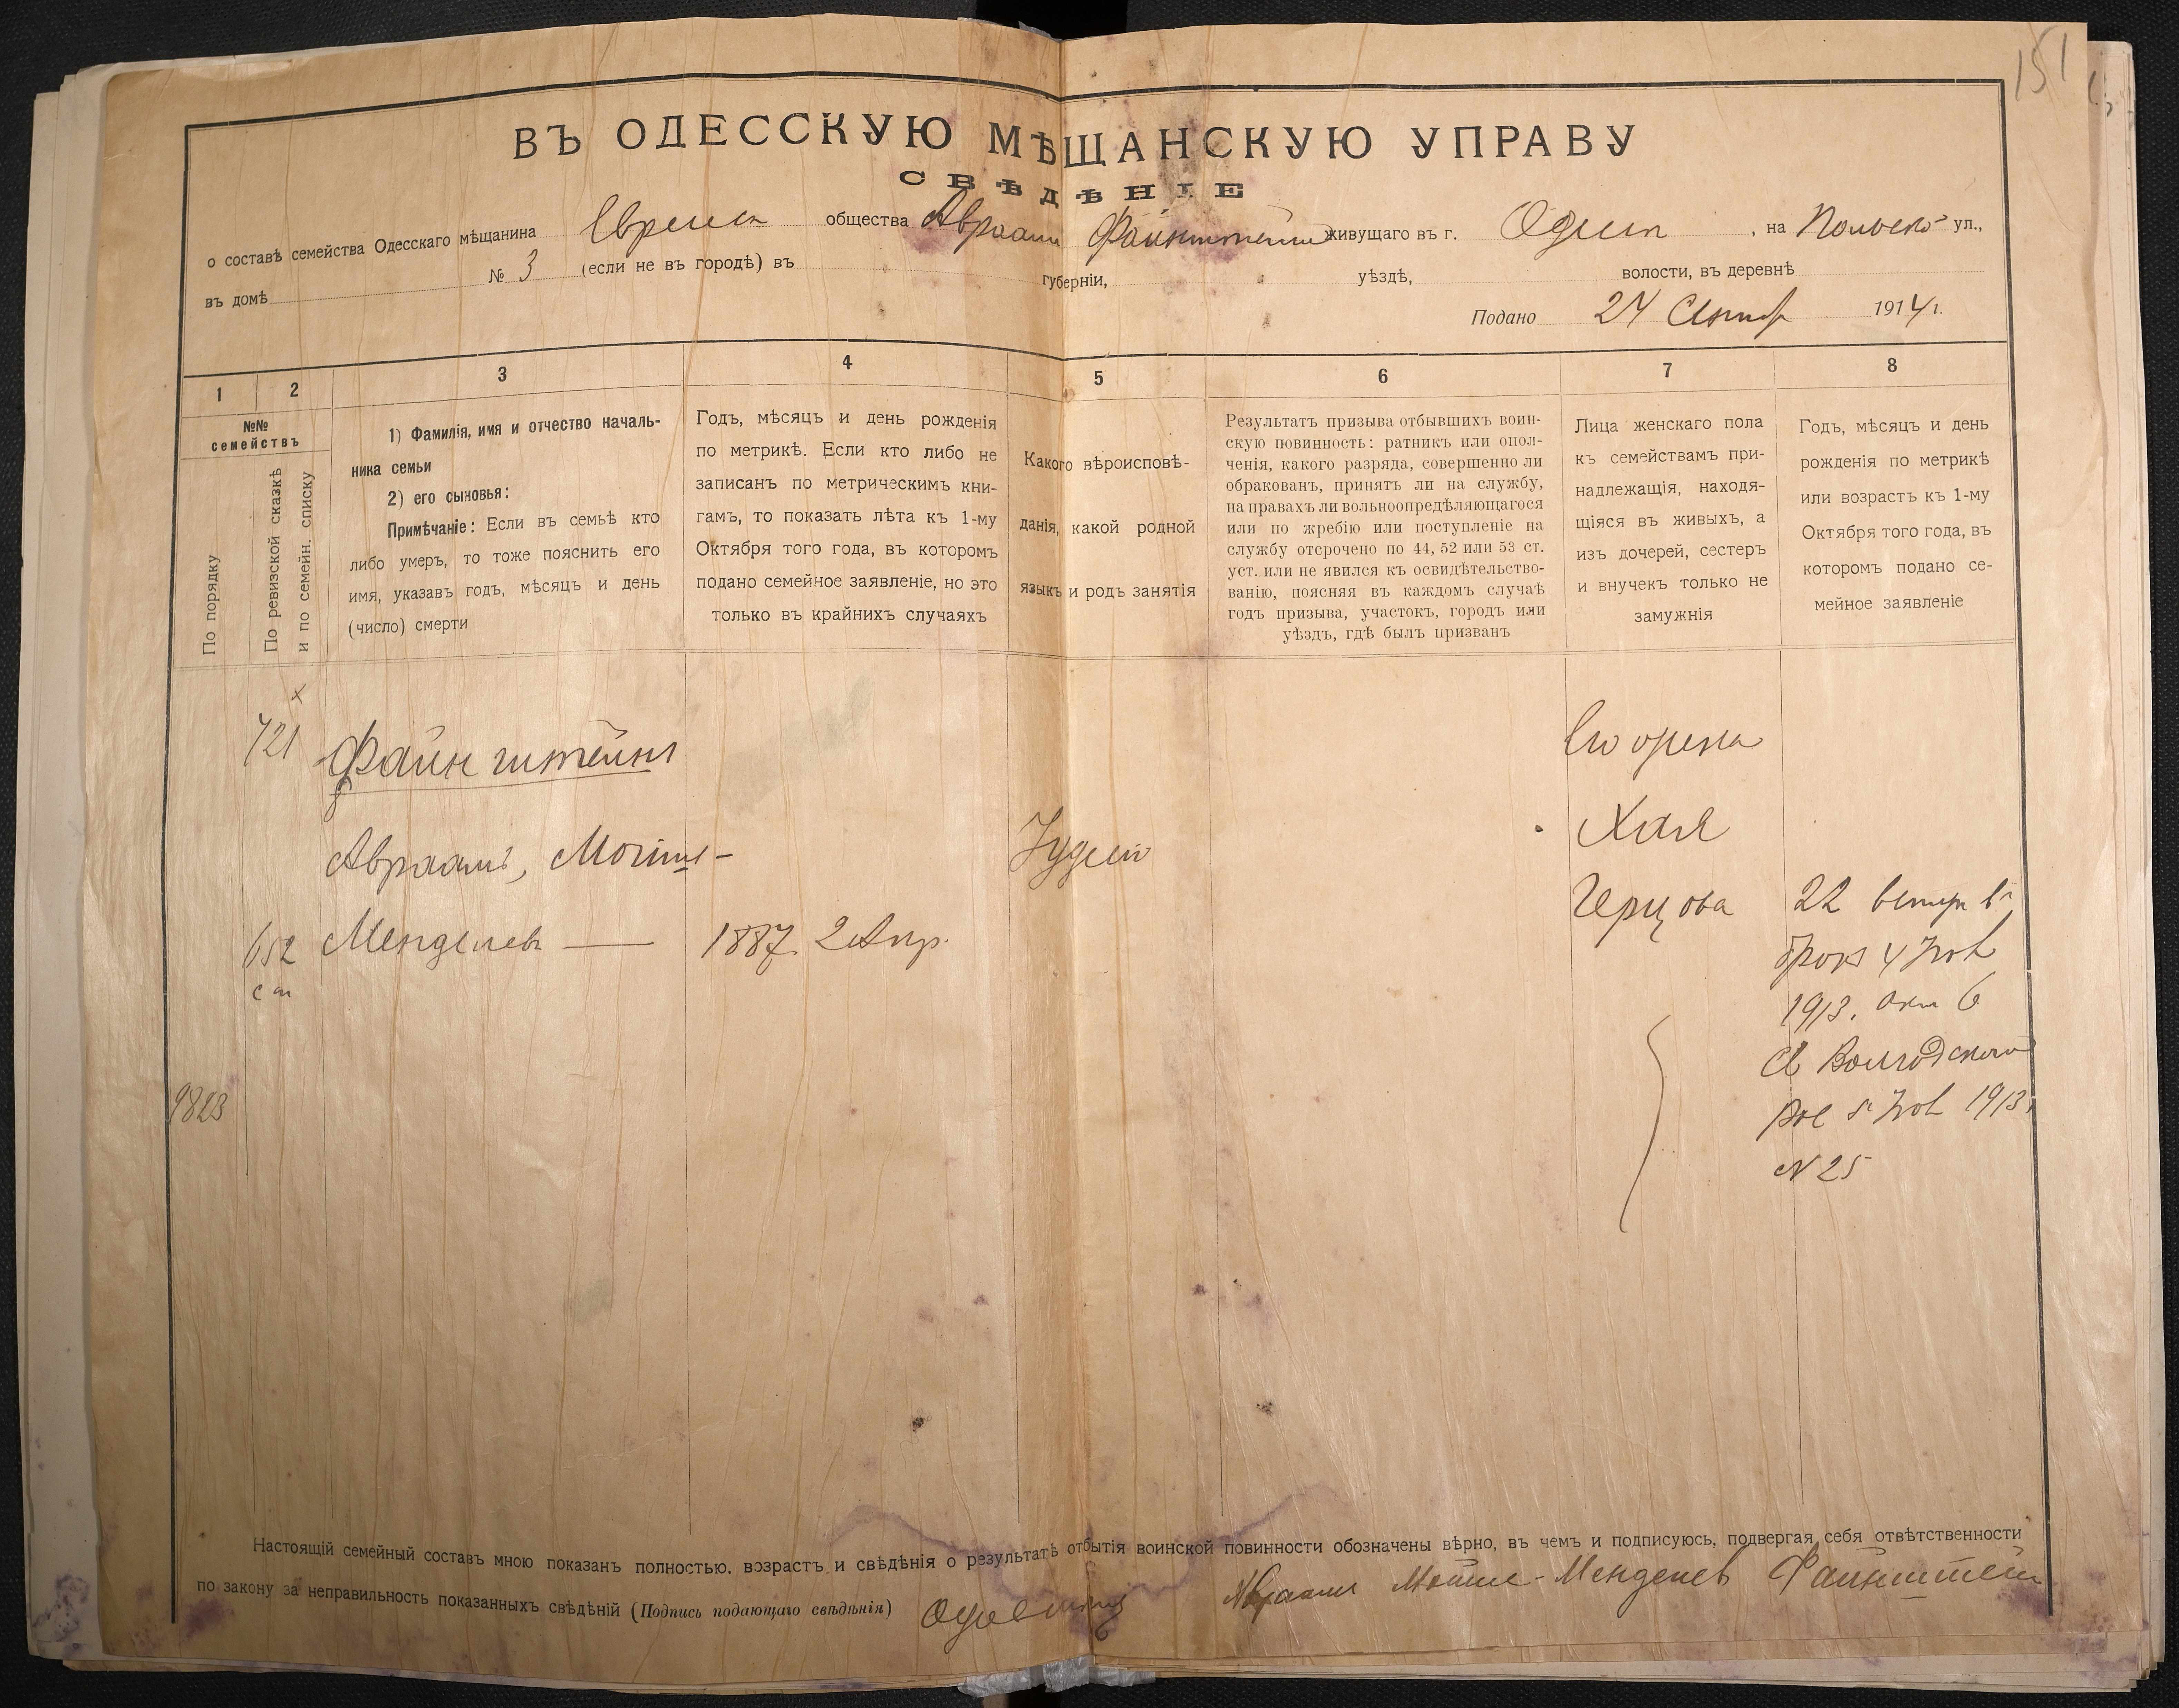 151
ВЪ ОДЕССКУЮ МѢЩАНСКУЮ УПРАВУ
СВѢДѢНІЕ
о составѣ семейства Одесскаго мѣщанина Евреиск общества Авраам Файнштейн живущаго въ г. , на Польск ул.,
въ домѣ № 3 (если не въ городѣ) въ губерніи, уѣздѣ, волости, въ деревнѣ
Подано 24 1914 г.
1 2 3 4 5 6 7 8
№№ семействъ
По порядку
По ревизской сказкѣ
и по семейн. списку
1) Фамилія, имя и отчество началь-
ника семьи
2) его сыновья:
Примѣчаніе: Если въ семьѣ кто
либо умеръ, то тоже пояснить его
имя, указавъ годъ, мѣсяцъ и день
(число) смерти
Годъ, мѣсяцъ и день рожденія
по метрикѣ. Если кто либо не
записанъ по метрическимъ кни-
гамъ, то показать лѣта къ 1-му
Октября того года, въ которомъ
подано семейное заявленіе, но это
только въ крайнихъ случаяхъ
Какого вѣроисповѣ-
данія, какой родной
языкъ и родъ занятія
Результатъ призыва отбывшихъ воин-
скую повинность: ратникъ или опол-
ченія, какого разряда, совершенно ли
обракованъ, принятъ ли на службу,
на правахъ ли вольноопредѣляющагося
или по жребію или поступленіе на
службу отсрочено по 44, 52 или 53 ст.
уст. или не явился къ освидѣтельство-
ванію, поясняя въ каждомъ случаѣ
годъ призыва, участокъ, городъ или
уѣздъ, гдѣ былъ призванъ
Лица женскаго пола
къ семействамъ при-
надлежащія, находя-
щіяся въ живыхъ, а
изъ дочерей, сестеръ
и внучекъ только не
замужнія
Годъ, мѣсяцъ и день
рожденія по метрикѣ
или возрастъ къ 1-му
Октября того года, въ
которомъ подано се-
мейное заявленіе
721 Файнштейнъ
Авраамъ, Мошк-
652 Менделев — 1887 2 Апр.
Іудей
Его жена
Хая
Герцова
22
4 Нов
1913. 6
5 Нов 1913
N 25
9823
Настоящій семейный составъ мною показанъ полностью, возрастъ и свѣдѣнія о результатѣ отбытія воинской повинности обозначены вѣрно, въ чемъ и подписуюсь, подвергая себя отвѣтственности
по закону за неправильность показанныхъ свѣдѣній (Подпись подающаго свѣдѣнія) Авраам Мошке-Менделев Файнштейн